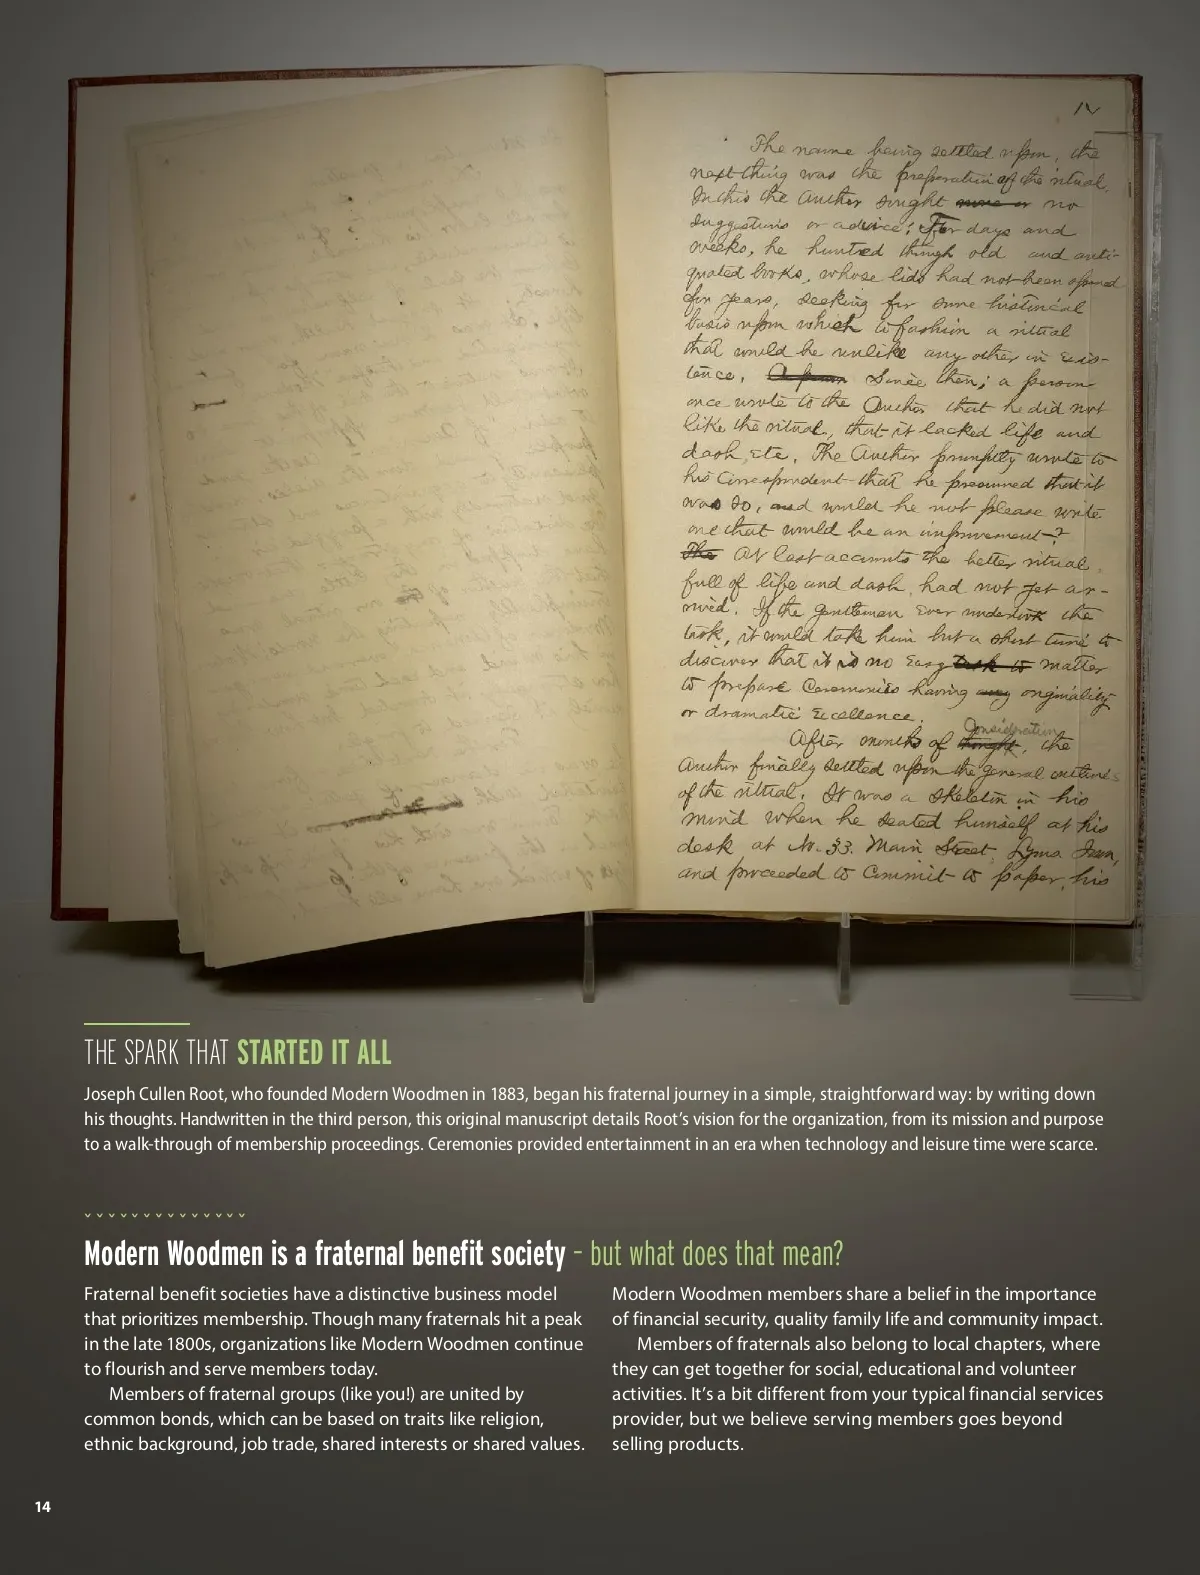 IV
The name being settled upon, the
next thing was the preparation of the ritual.
In this the Author sought more or no
suggestions or advice; For days and
weeks, he hunted though old and anti-
quated books, whose lids had not been opened
for years, seeking for some historical
basis upon which to fashion a ritual
that would be unlike any other in exis-
tence. Since then; a person
once wrote to the Author that he did not
like the ritual, that it lacked life and
dash, etc. The Author promptly wrote to
his correspondent that he presumed that it
was so, and would he not please write
one that would be an improvement?
The At last accounts the better ritual
full of life and dash, had not yet ar-
rived. If the gentleman ever undertook the
task, it would take him but a short time to
discover that it is no easy task to matter
to prepare ceremonies having any originality
or dramatic excellence.
Consideration
After months of thought, the
Author finally settled upon the general outlines
of the ritual. It was a skeleton in his
mind when he seated himself at his
desk at No. 33. Main Street, Lyons Iowa,
and proceeded to commit to paper, his
THE SPARK THAT STARTED IT ALL
Joseph Cullen Root, who founded Modern Woodmen in 1883, began his fraternal journey in a simple, straightforward way: by writing down
his thoughts. Handwritten in the third person, this original manuscript details Root's vision for the organization, from its mission and purpose
to a walk-through of membership proceedings. Ceremonies provided entertainment in an era when technology and leisure time were scarce.
Modern Woodmen is a fraternal benefit society – but what does that mean?
Fraternal benefit societies have a distinctive business model
that prioritizes membership. Though many fraternals hit a peak
in the late 1800s, organizations like Modern Woodmen continue
to flourish and serve members today.
Members of fraternal groups (like you!) are united by
common bonds, which can be based on traits like religion,
ethnic background, job trade, shared interests or shared values.
Modern Woodmen members share a belief in the importance
of financial security, quality family life and community impact.
Members of fraternals also belong to local chapters, where
they can get together for social, educational and volunteer
activities. It's a bit different from your typical financial services
provider, but we believe serving members goes beyond
selling products.
14